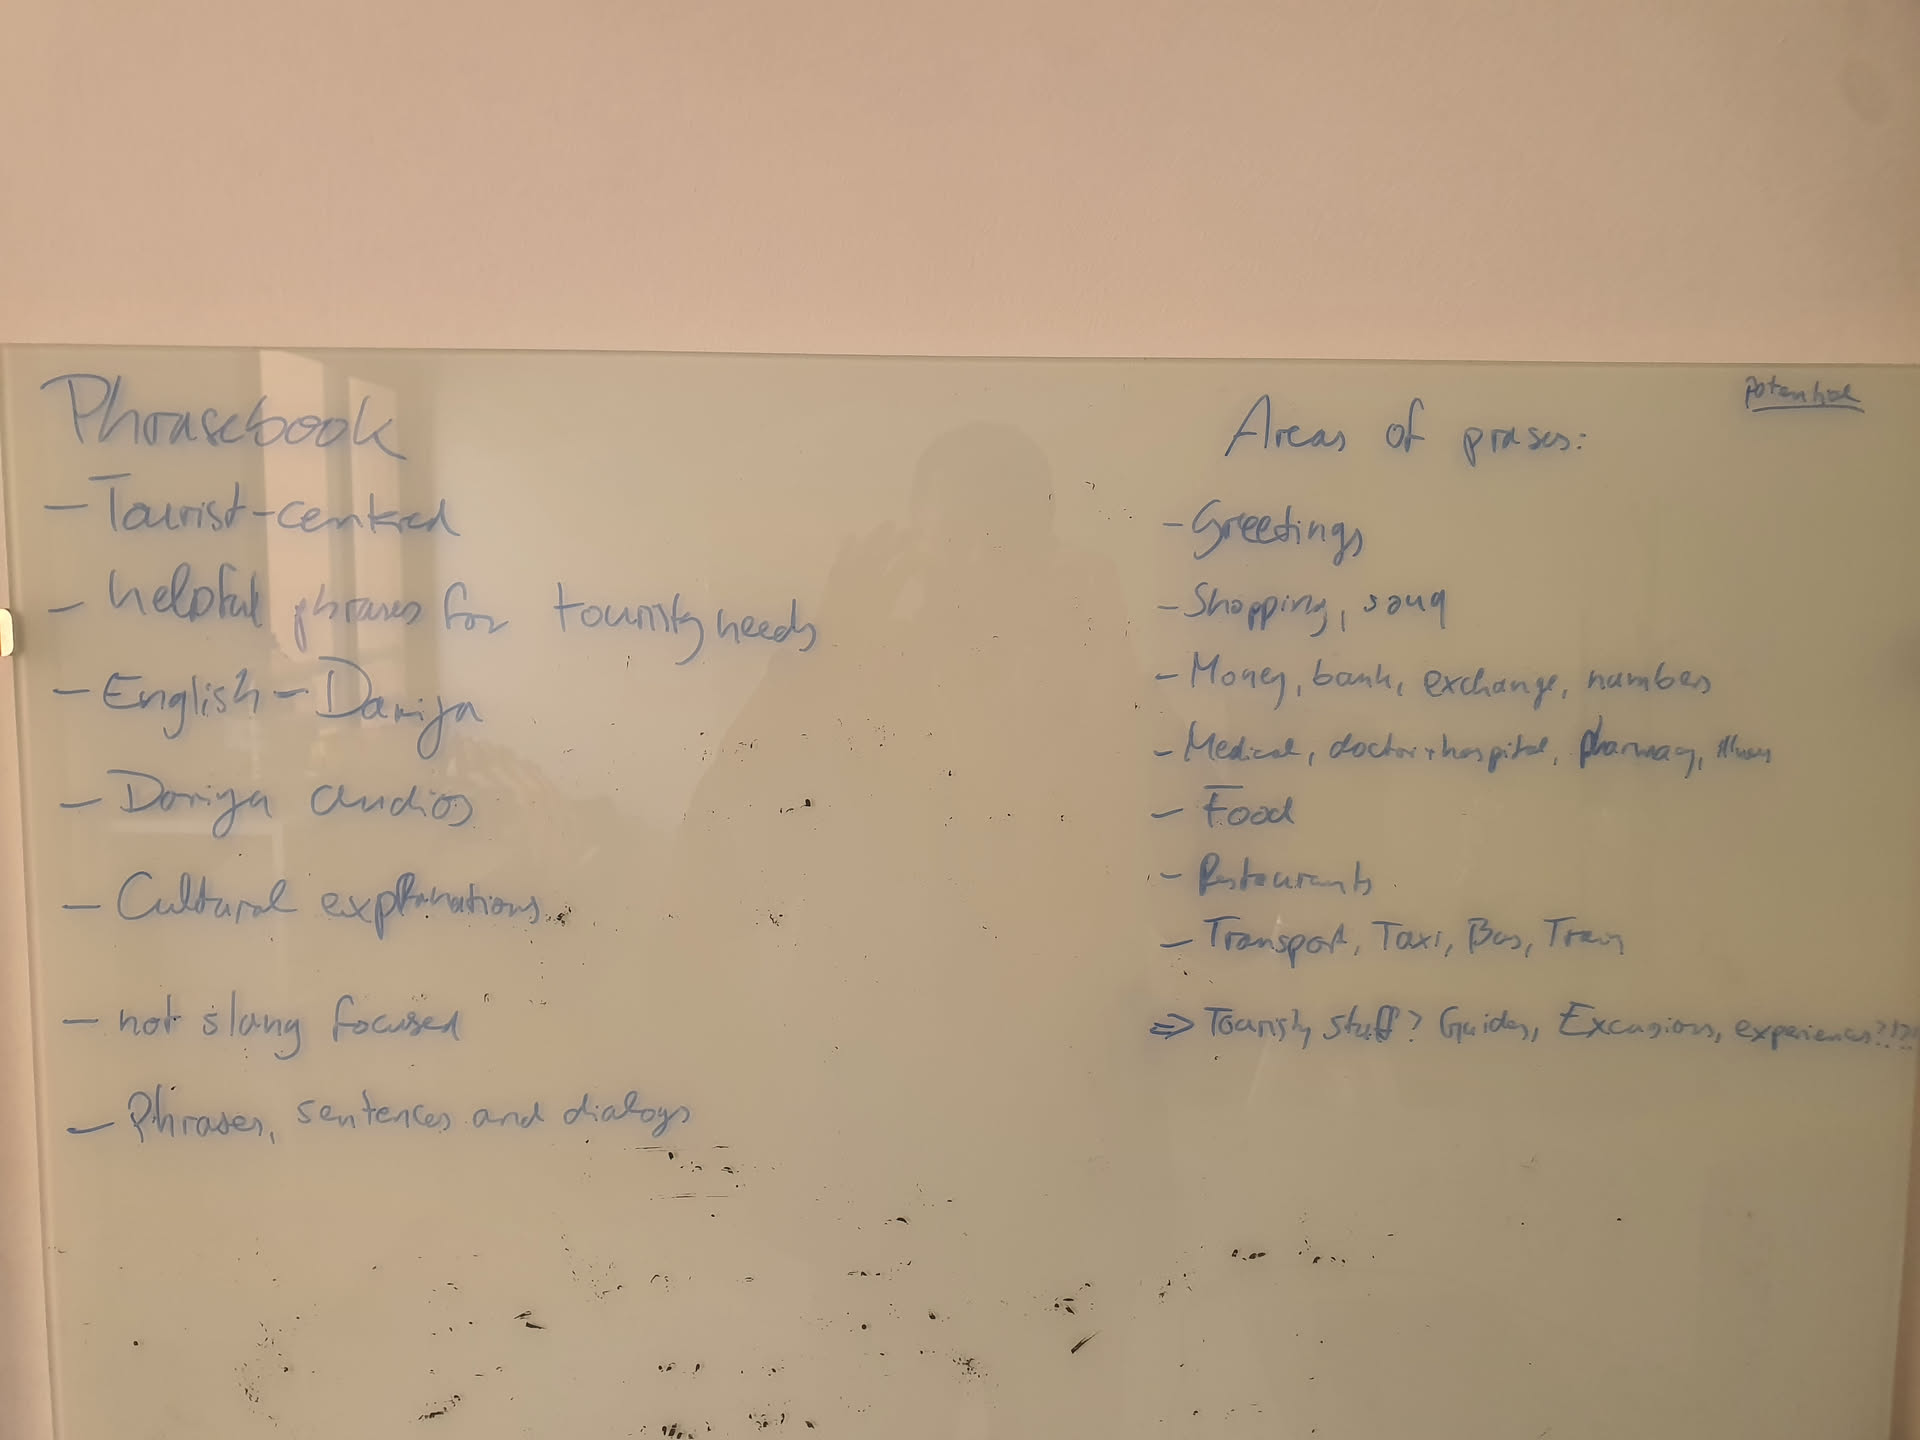 Phrasebook
- Tourist-centred
- helpful phrases for touristy needs
- English - Darija
- Darija audios
- Cultural explanations
- not slang focused
- Phrases, sentences and dialogs
potential
Areas of prases:
- Greetings
- Shopping, souq
- Money, bank, exchange, numbers
- Medical, doctor + hospital, pharmacy,
- Food
- Restaurants
- Transport, Taxi, Bus, Train
⇒ Touristy stuff? Guides, Excusions, experiences?!?!